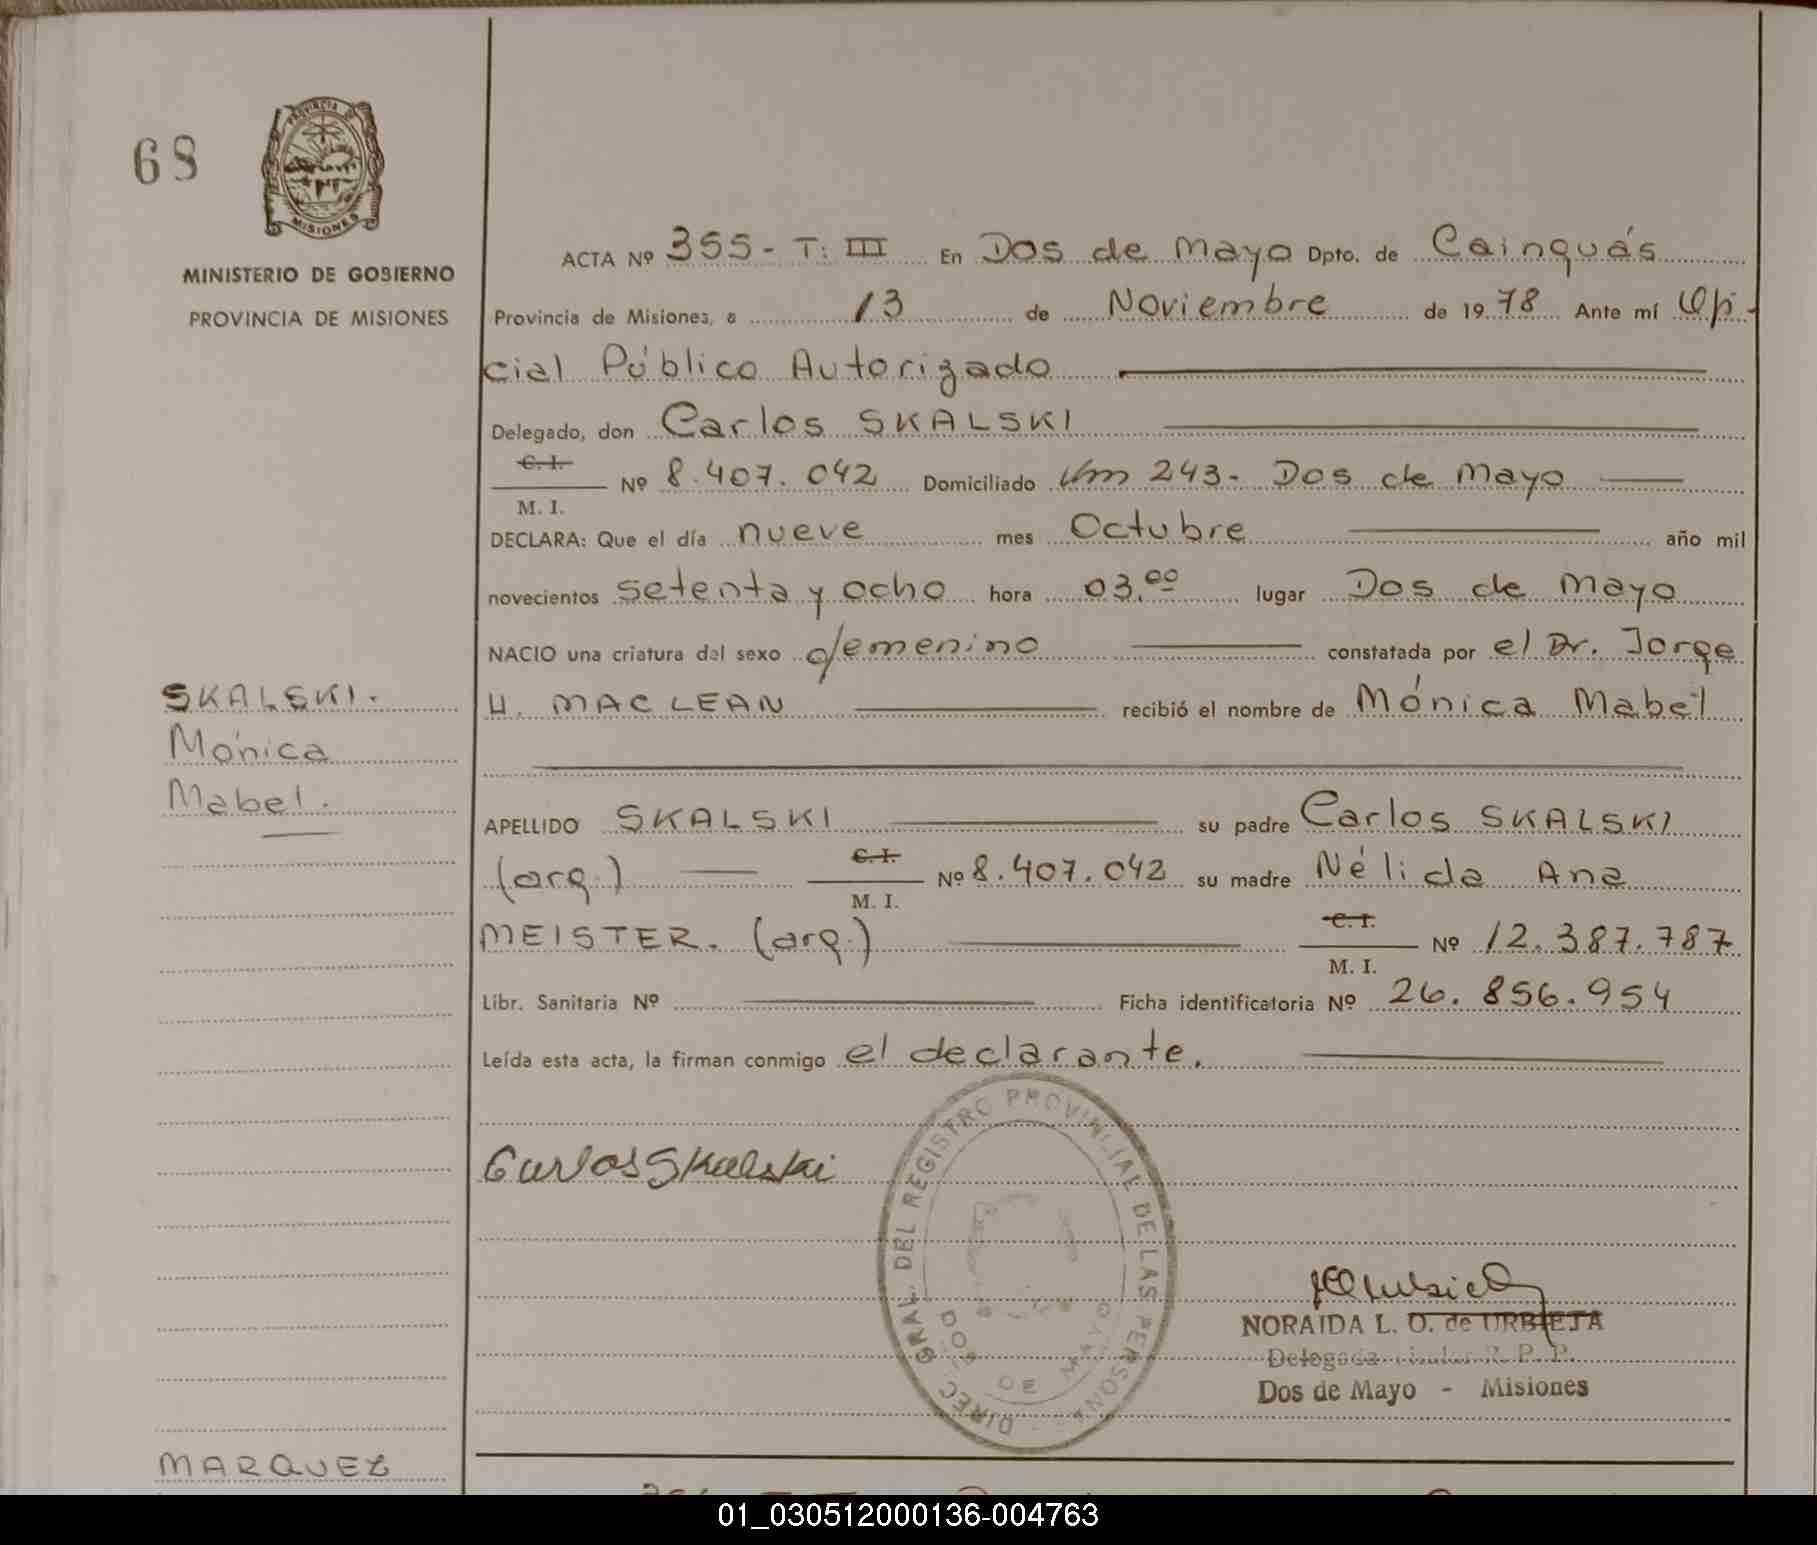 68
PROVINCIA DE
MISIONES
MINISTERIO DE GOBIERNO
PROVINCIA DE MISIONES
ACTA Nº 355 - T: III En Dos de Mayo Dpto. de Cainguás
Provincia de Misiones, a 13 de Noviembre de 1978 Ante mí Ofi-
cial Público Autorizado
Delegado, don Carlos SKALSKI
C. I.
M. I. Nº 8.407.042 Domiciliado Km 243 - Dos de Mayo
DECLARA: Que el día nueve mes Octubre año mil
novecientos setenta y ocho hora 03.00 lugar Dos de Mayo
NACIO una criatura del sexo femenino constatada por el Dr. Jorge
H. MAC LEAN recibió el nombre de Mónica Mabel
SKALSKI.
Mónica
Mabel.
APELLIDO SKALSKI su padre Carlos SKALSKI
(arg.) C. I.
M. I. Nº 8.407.042 su madre Nélida Ana
MEISTER. (arg.) C. I.
M. I. Nº 12.387.787
Libr. Sanitaria Nº Ficha identificatoria Nº 26.856.954
Leída esta acta, la firman conmigo el declarante.
Carlos Skalski
DIREC. GRAL. DEL REGISTRO PROVINCIAL DE LAS PERSONAS
DOS DE MAYO
NORAIDA L. O. de URBIETA
Delegada R. P. P.
Dos de Mayo - Misiones
MARQUEZ
01_030512000136-004763